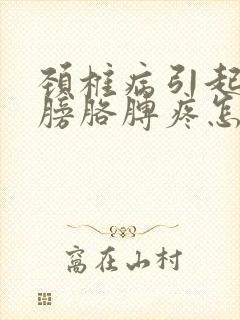 颈椎病引起
膀胳脾疼怎
窝在山村